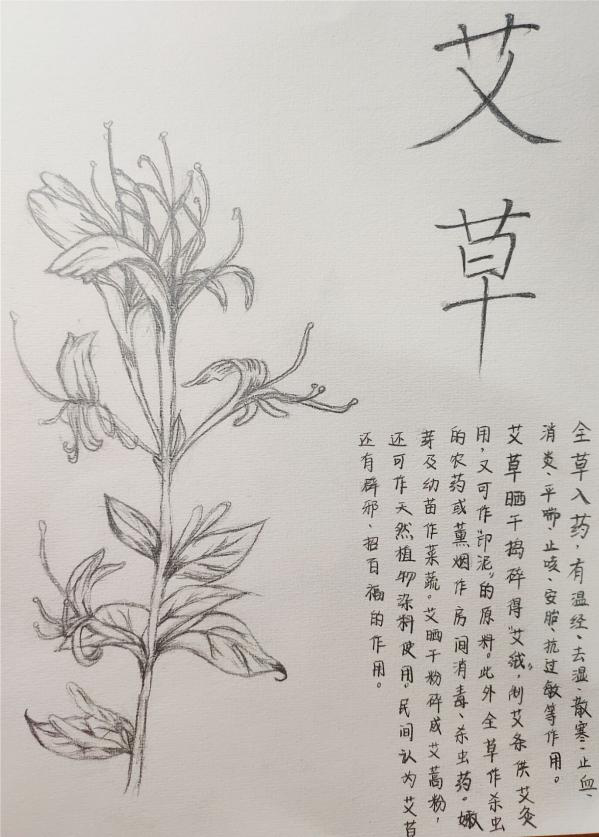 艾草
全草入药，有温经、去湿、散寒、止血、
消炎、平喘、止咳、安胎、抗过敏等作用。
艾草晒干捣碎得“艾绒”，制艾条供艾灸
用，又可作“印泥”的原料。此外全草作杀虫
的农药或薰烟作房间消毒、杀虫药。嫩
芽及幼苗作菜蔬。艾晒干粉碎成艾蒿粉，
还可作天然植物染料使用。民间认为艾苔
还有辟邪、招百福的作用。